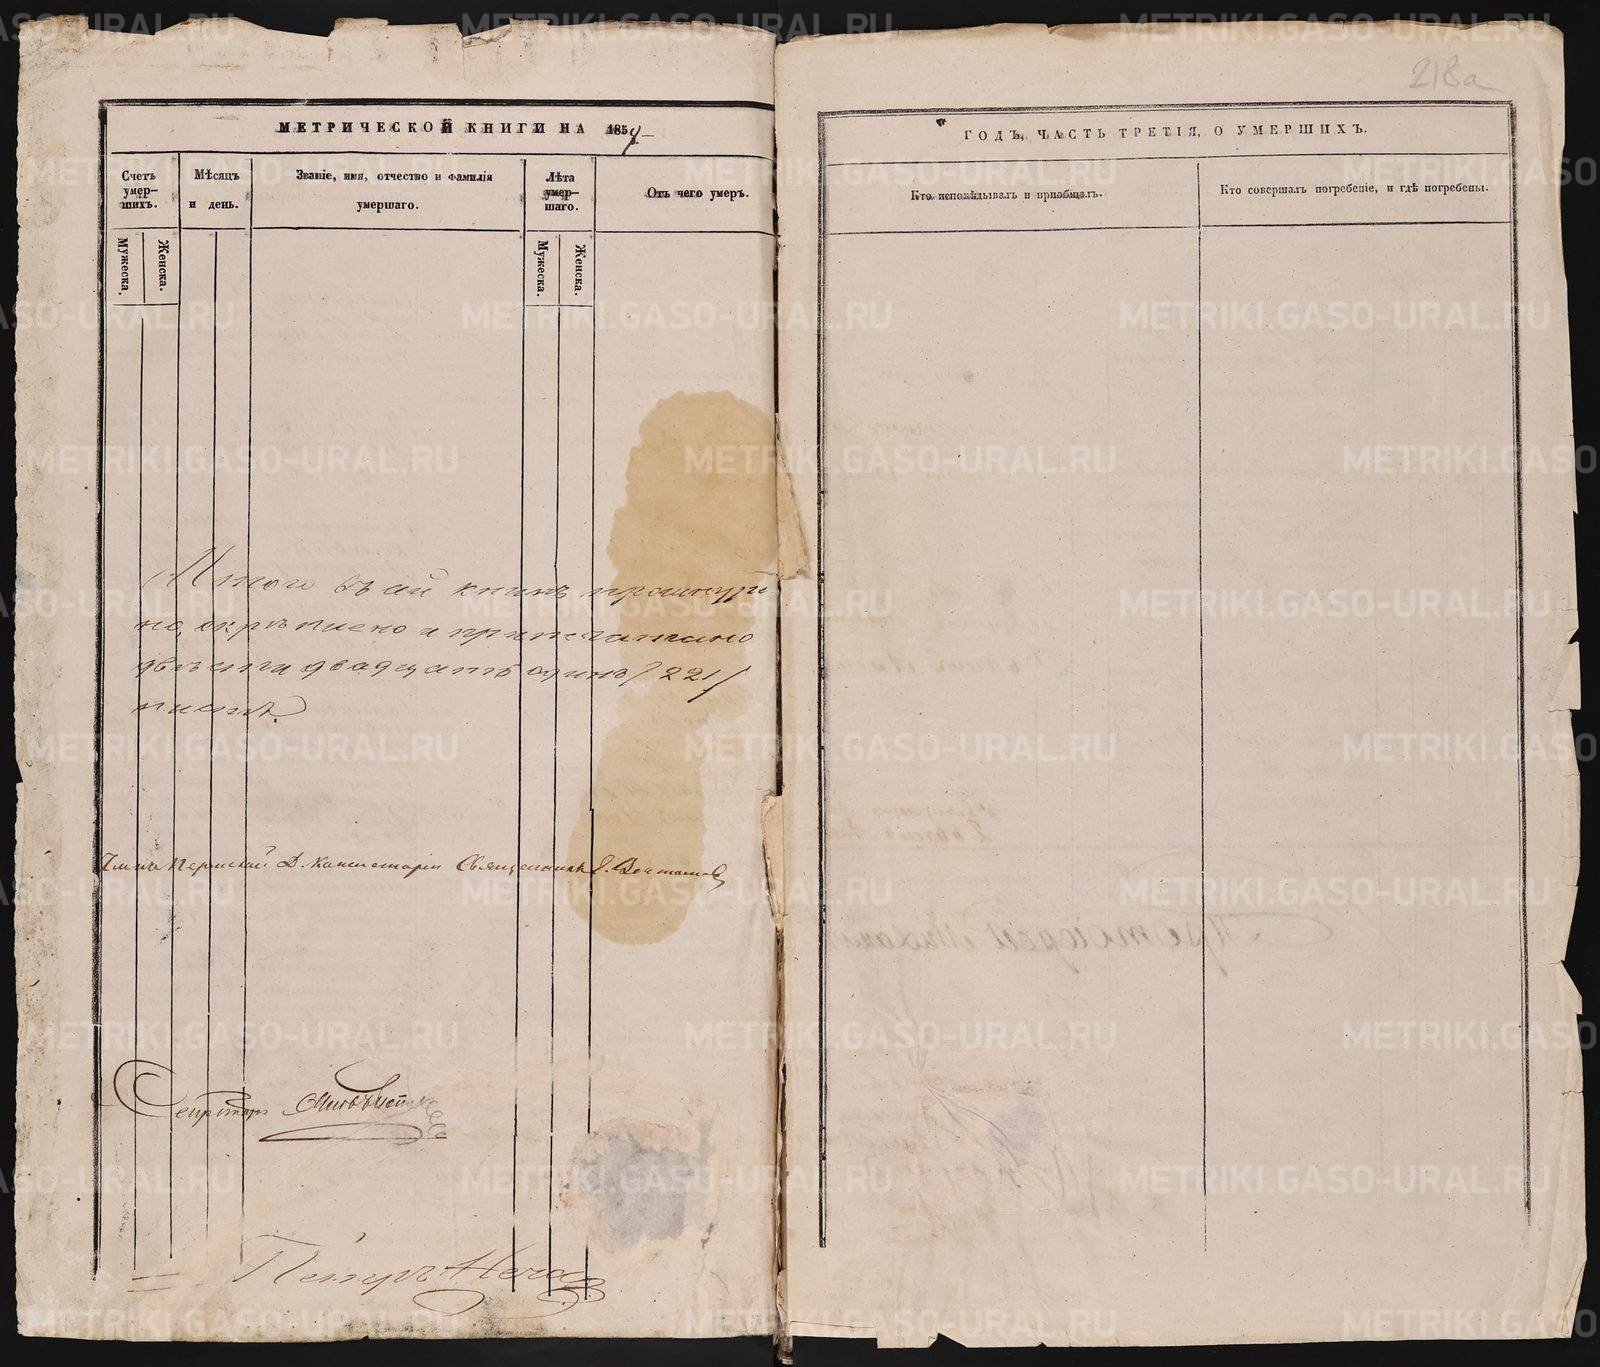 МЕТРИЧЕСКОЙ КНИГИ НА 1859
Счетъ умер-шихъ.
Мужеска.
Женска.
Мѣсяцъ и день.
Званіе, имя, отчество и фамилія умершаго.
Лѣта умер-шаго.
Мужеска.
Женска.
Отъ чего умеръ.
Итого въ сей книгѣ прошнуре
но, скрѣплено и припечатано
двѣсти двадцать одинъ /221/
листъ.
Членъ Пермской Д. Консисторіи Священникъ
Секретарь
Петръ
218а
ГОДЪ, ЧАСТЬ ТРЕТІЯ, О УМЕРШИХЪ.
Кто исповѣдывалъ и пріобщалъ.
Кто совершалъ погребеніе, и гдѣ погребены.
METRIKI.GASO-URAL.RU